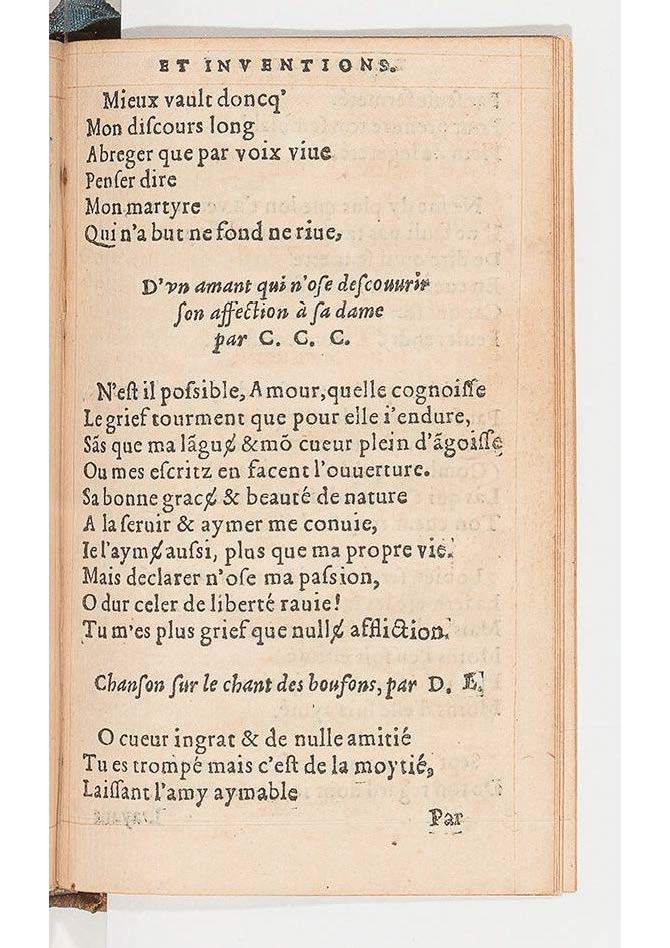 ET INVENTIONS.
Mieux vault doncq'
Mon diſcours long
Abreger que par voix viue
Penſer dire
Mon martyre
Qui n'a but ne fond ne riue,
D'vn amant qui n'oſe deſcouurir
ſon affection à ſa dame
par C. C. C.
N'eſt il poſsible, Amour, quelle cognoiſſe
Le grief tourment que pour elle i'endure,
Sãs que ma lãguɇ & mõ cueur plein d'ãgoiſſe
Ou mes eſcritz en facent l'ouuerture.
Sa bonne gracɇ & beauté de nature
A la ſeruir & aymer me conuie,
Ie l'aymɇ auſsi, plus que ma propre vie.
Mais declarer n'oſe ma paſsion,
O dur celer de liberté rauie!
Tu m'es plus grief que nullɇ affliction.
Chanſon ſur le chant des boufons, par D. E.
O cueur ingrat & de nulle amitié
Tu es trompé mais c'eſt de la moytié,
Laiſſant l'amy aymable
Par